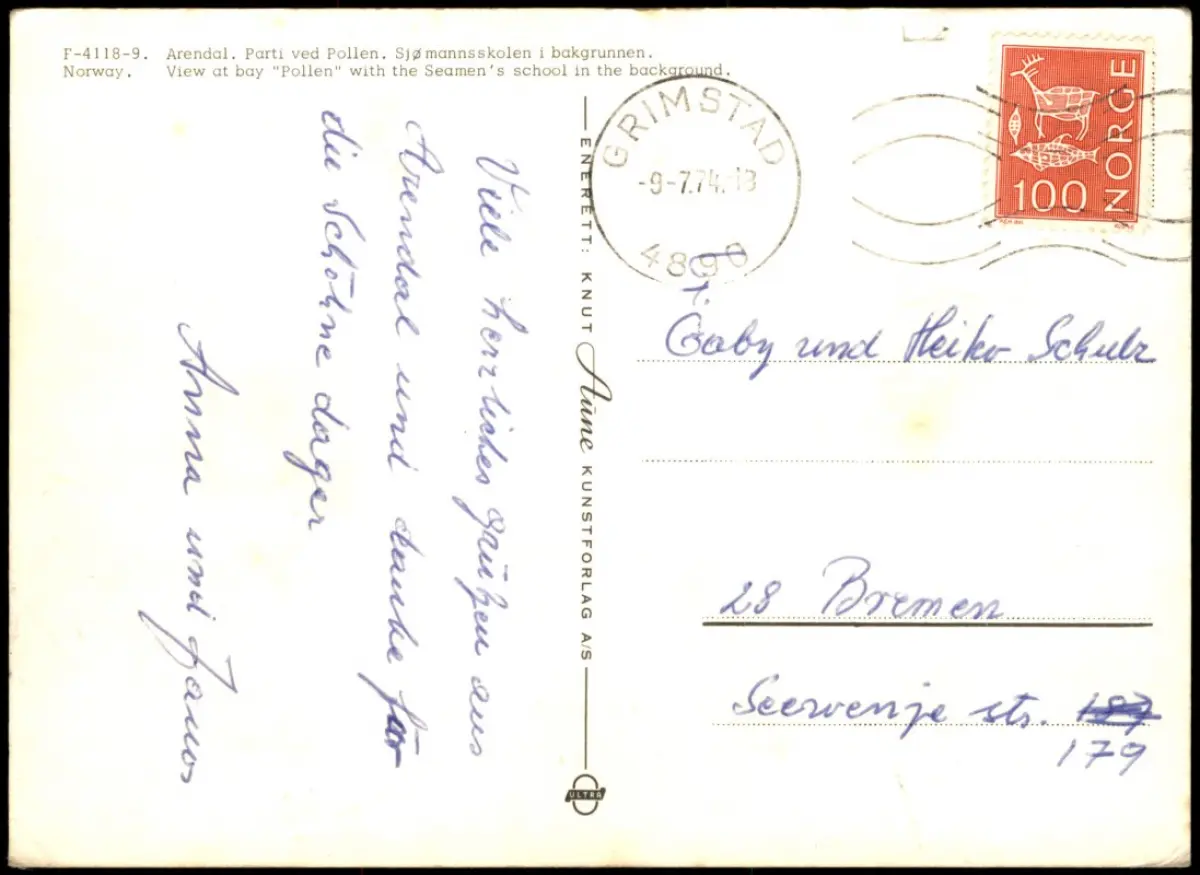 F-4118-9. Arendal. Parti ved Pollen. Sjømannsskolen i bakgrunnen.
Norway. View at bay "Pollen" with the Seamen's school in the background.
Viele herzliches grüßen aus
Arendal und danke für
die schöhne dager
Anna und Janos
ENERETT: KNUT Aune KUNSTFORLAG A/S
ULTRA
GRIMSTAD
-9-7.74.-13
4890
NORGE
100
F.
Gaby und Heiko Schulz
28 Bremen
Seewenje str. 187
179